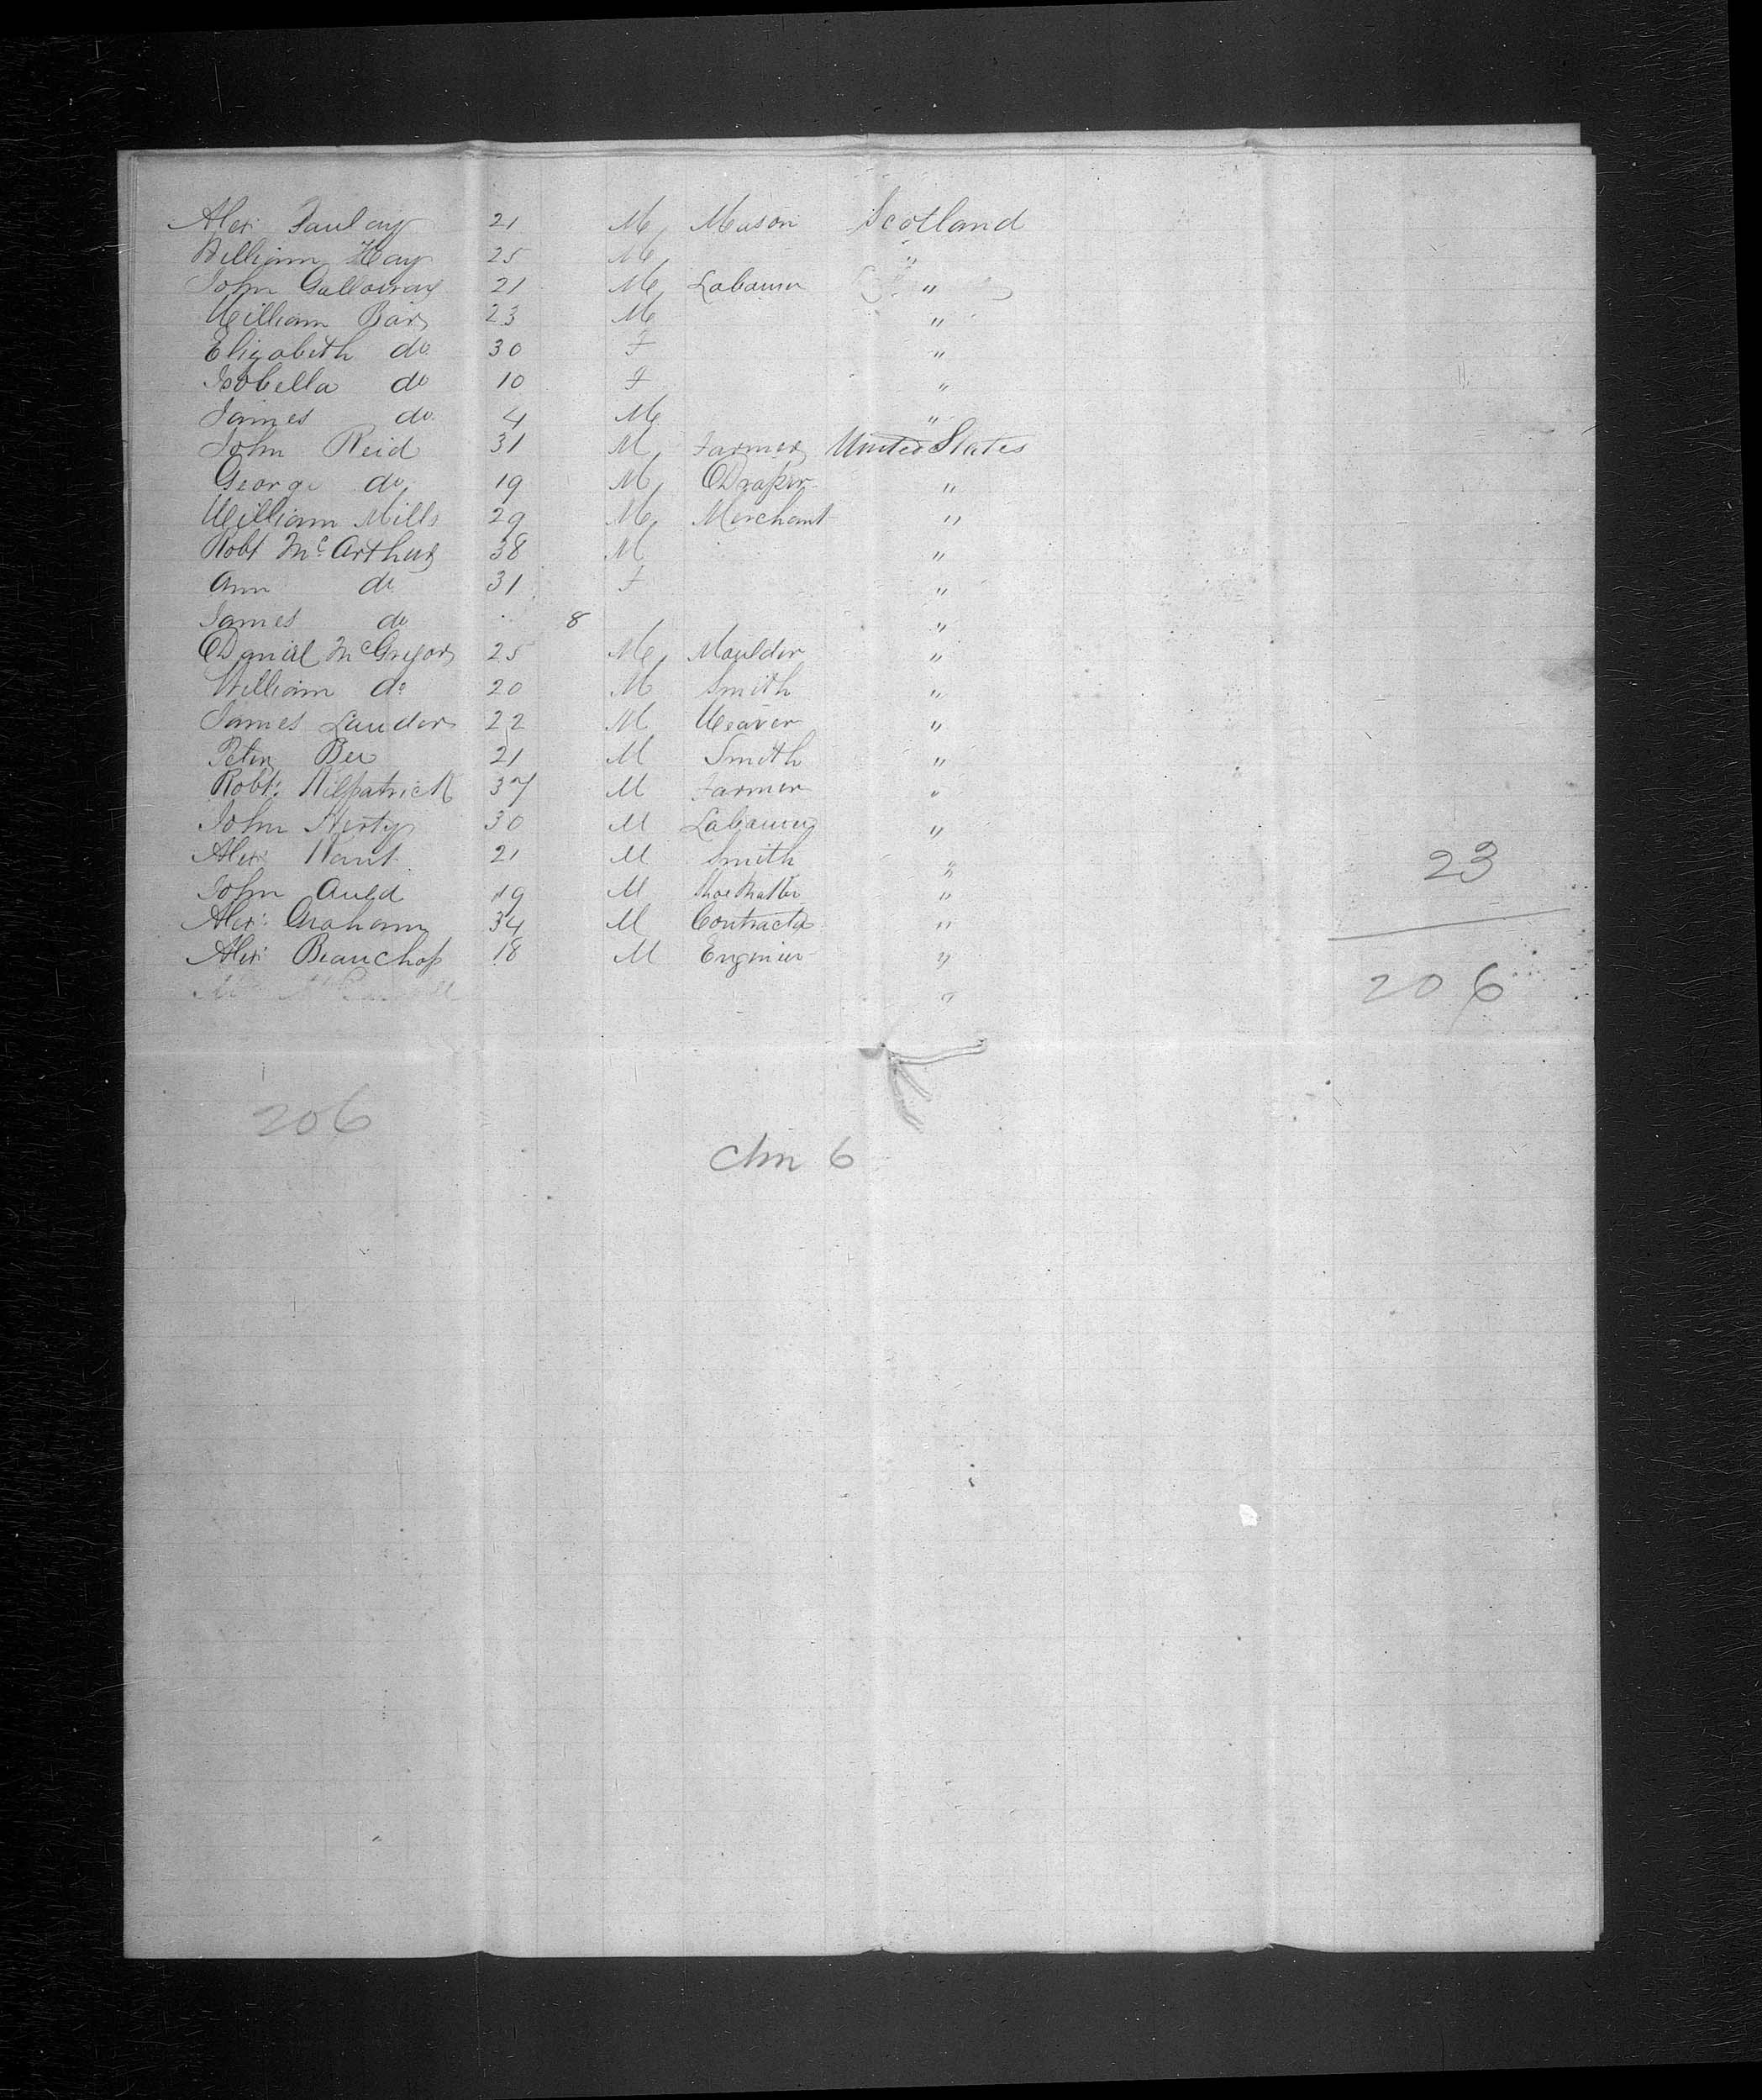 Alexr Paulay 21 M Mason Scotland
William Hay 25 M "
John Galloway 21 M Labourer "
William Bair 23 M "
Elizabeth do 30 F "
Isobella do 10 F "
James do 4 M "
John Reid 31 M Farmer United States
George do 19 M Draper "
William Mills 29 M Merchant "
Robt McArthur 38 M "
Ann do 31 F "
James do 8 "
Daniel McGregor 25 M Moulder "
William do 20 M Smith "
James Lauder 22 M Weaver "
Peter Bee 21 M Smith "
Robt. Kilpatrick 37 M Farmer "
John 30 M Labourer "
Alexr 21 M Smith "
John Auld 19 M Shoe Maker "
Alexr Graham 34 M Contractor "
Alexr Beauchop 18 M Engineer "
"
23
206
206
Chn 6